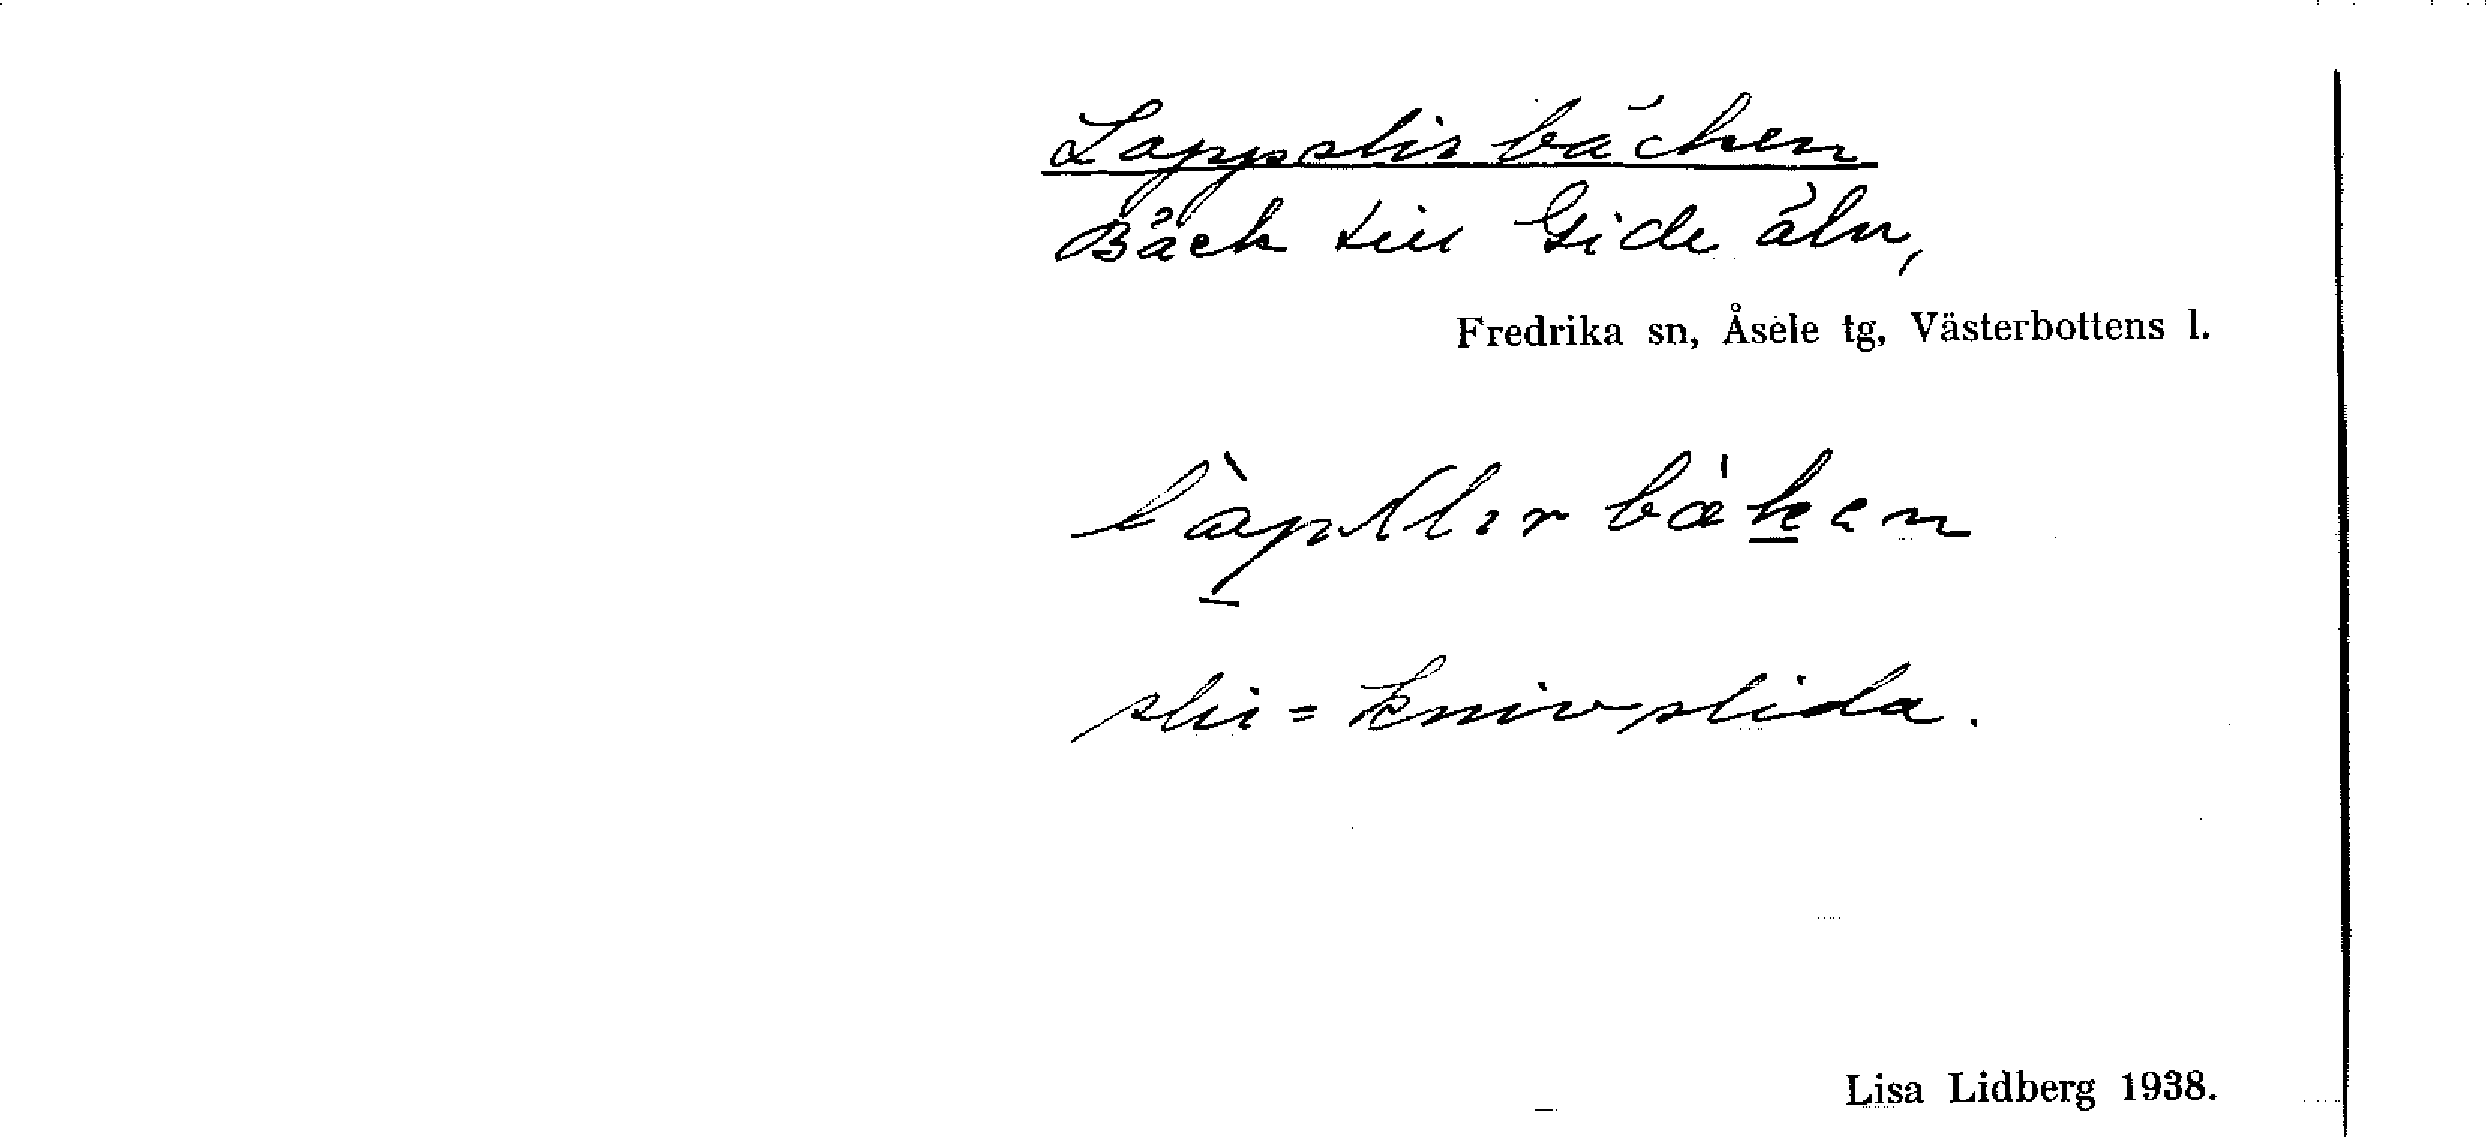 Lappslirbäcken
Bäck till Gide älv,
Fredrika sn, Åsele tg, Västerbottens l.
slir = knivslida.
Lisa Lidberg 1938.